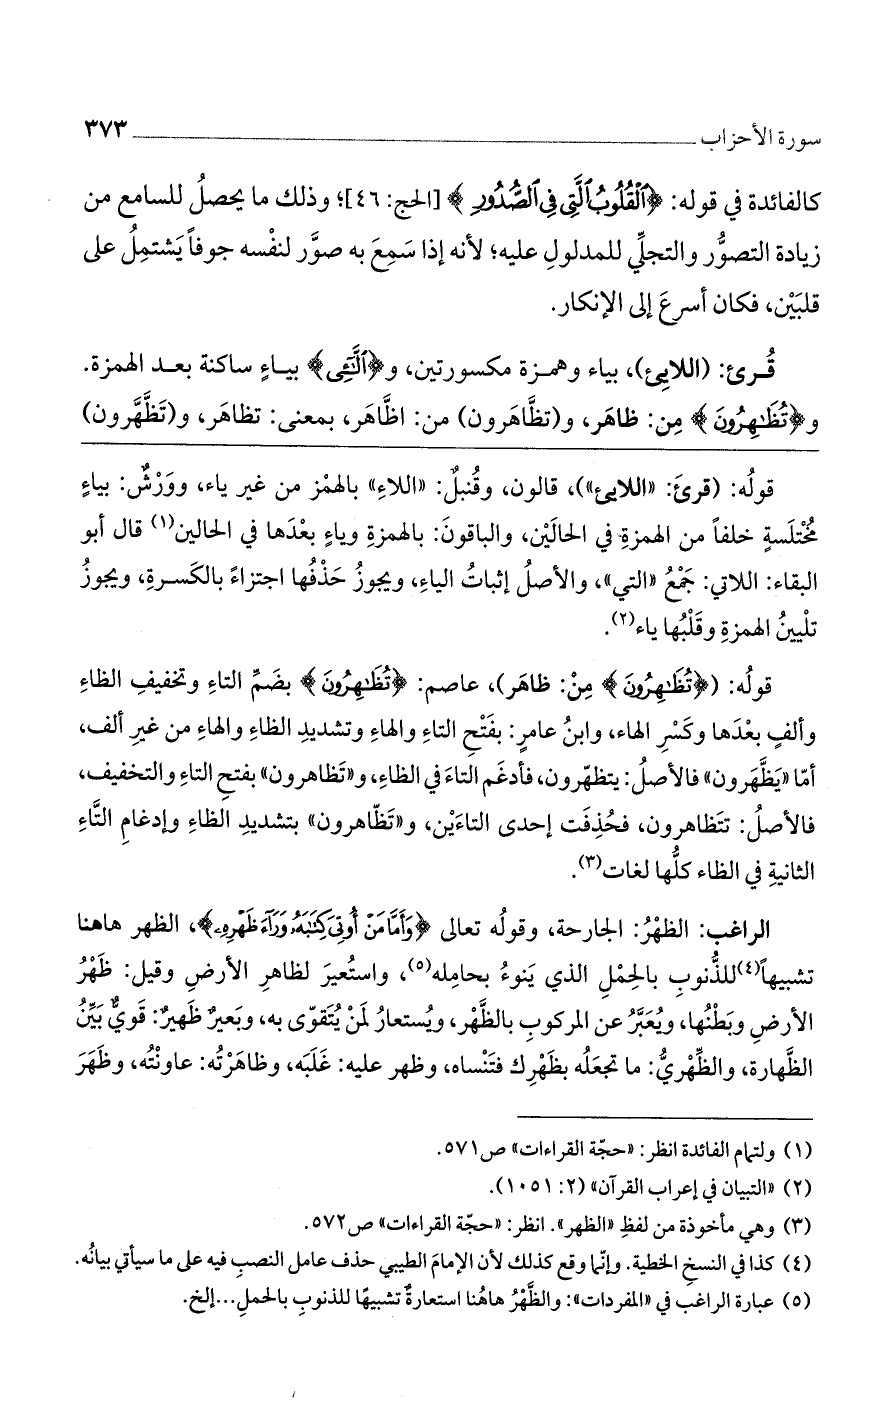 سورة الأحزاب ٣٧٣
كالفائدة في قوله: ﴿ٱلْقُلُوبُ ٱلَّتِى فِى ٱلصُّدُورِ﴾ [الحج: ٤٦]؛ وذلك ما يحصلُ للسامع من
زيادة التصوُّر والتجلِّي للمدلولِ عليه؛ لأنه إذا سَمِعَ به صوَّر لنفْسه جوفاً يَشتمِلُ على
قلبَيْن، فكان أسرعَ إلى الإنكار.
قُـرئ: (اللايِئ)، بياء وهمـزة مكسـورتين، و﴿ٱلَّٰٓـِٔى﴾ بيـاءٍ ساكنة بعـد الهمزة.
و﴿تُظَٰهِرُونَ﴾ مِن: ظاهَر، و(تظَّاهَرون) من: اظَّاهَر، بمعنى: تظاهَر، و(تَظَّهَّرون)
قولُه: (قرئَ: «اللايئ»)، قالون، وقُنبلٌ: «اللاءِ» بالهمْز من غير ياء، ووَرْشٌ: بياءٍ
مُخْتلَسةٍ خلفاً من الهمزةِ في الحالَيْن، والباقونَ: بالهمزةِ وياءٍ بعْدَها في الحالين(١) قال أبو
البقاء: اللاتي: جَمْعُ «التي»، والأصلُ إثباتُ الياءِ، ويجوزُ حَذْفُها اجتزاءً بالكَسرةِ، ويجوزُ
تلْيينُ الهمزةِ وقَلْبُها ياء(٢).
قولُه: (﴿تُظَٰهِرُونَ﴾ مِنْ: ظاهَر)، عاصم: ﴿تُظَٰهِرُونَ﴾ بضَمِّ التاءِ وتخفيفِ الظاءِ
وألفٍ بعْدَها وكَسْرِ الهاء، وابنُ عامرٍ: بفَتْحِ التاءِ والهاءِ وتشديدِ الظاءِ والهاءِ من غيرِ ألف،
أمّا «يَظَّهَرون» فالأصلُ: يتظهّرون، فأدغَم التاءَ في الظاءِ، و«تَظاهرون» بفتحِ التاءِ والتخفيف،
فالأصلُ: تتَظاهرون، فحُذِفَت إحدى التاءَيْن، و«تَظّاهرون» بتشديدِ الظاءِ وإدغامِ التَّاءِ
الثانيةِ في الظاء كلُّها لغات(٣).
الراغب: الظهْرُ: الجارحة، وقولُه تعالى ﴿وَأَمَّا مَنْ أُوتِىَ كِتَٰبَهُۥ وَرَآءَ ظَهْرِهِۦ﴾، الظهر هاهنا
تشبيهاً(٤)للذُّنوبِ بالحِمْلِ الذي يَنوءُ بحامِله(٥)، واستُعيرَ لظاهرِ الأرضِ وقيل: ظَهْرُ
الأرضِ وبَطْنُها، ويُعَبَّرُ عن المركوبِ بالظَّهْر، ويُستعارُ لمَنْ يُتَقوّى به، وبَعيرٌ ظَهيرٌ: قَويٌّ بَيِّنُ
الظَّهارة، والظِّهْريُّ: ما تجعَلُه بظَهْرِك فتَنْساه، وظهر عليه: غَلَبَه، وظاهَرْتُه: عاونْتُه، وظَهَرَ
(١) ولتمام الفائدة انظر: «حجّة القراءات» ص٥٧١.
(٢) «التبيان في إعراب القرآن» (٢: ١٠٥١).
(٣) وهي مأخوذة من لفظِ «الظهر». انظر: «حجّة القراءات» ص٥٧٢.
(٤) كذا في النسخِ الخطية. وإنّما وقع كذلك لأن الإمامَ الطيبي حذف عامل النصبِ فيه على ما سيأتي بيانُه.
(٥) عبارة الراغب في «المفردات»: والظَّهْرُ هاهُنا استعارةٌ تشبيهًا للذنوبِ بالحملِ...إلخ.